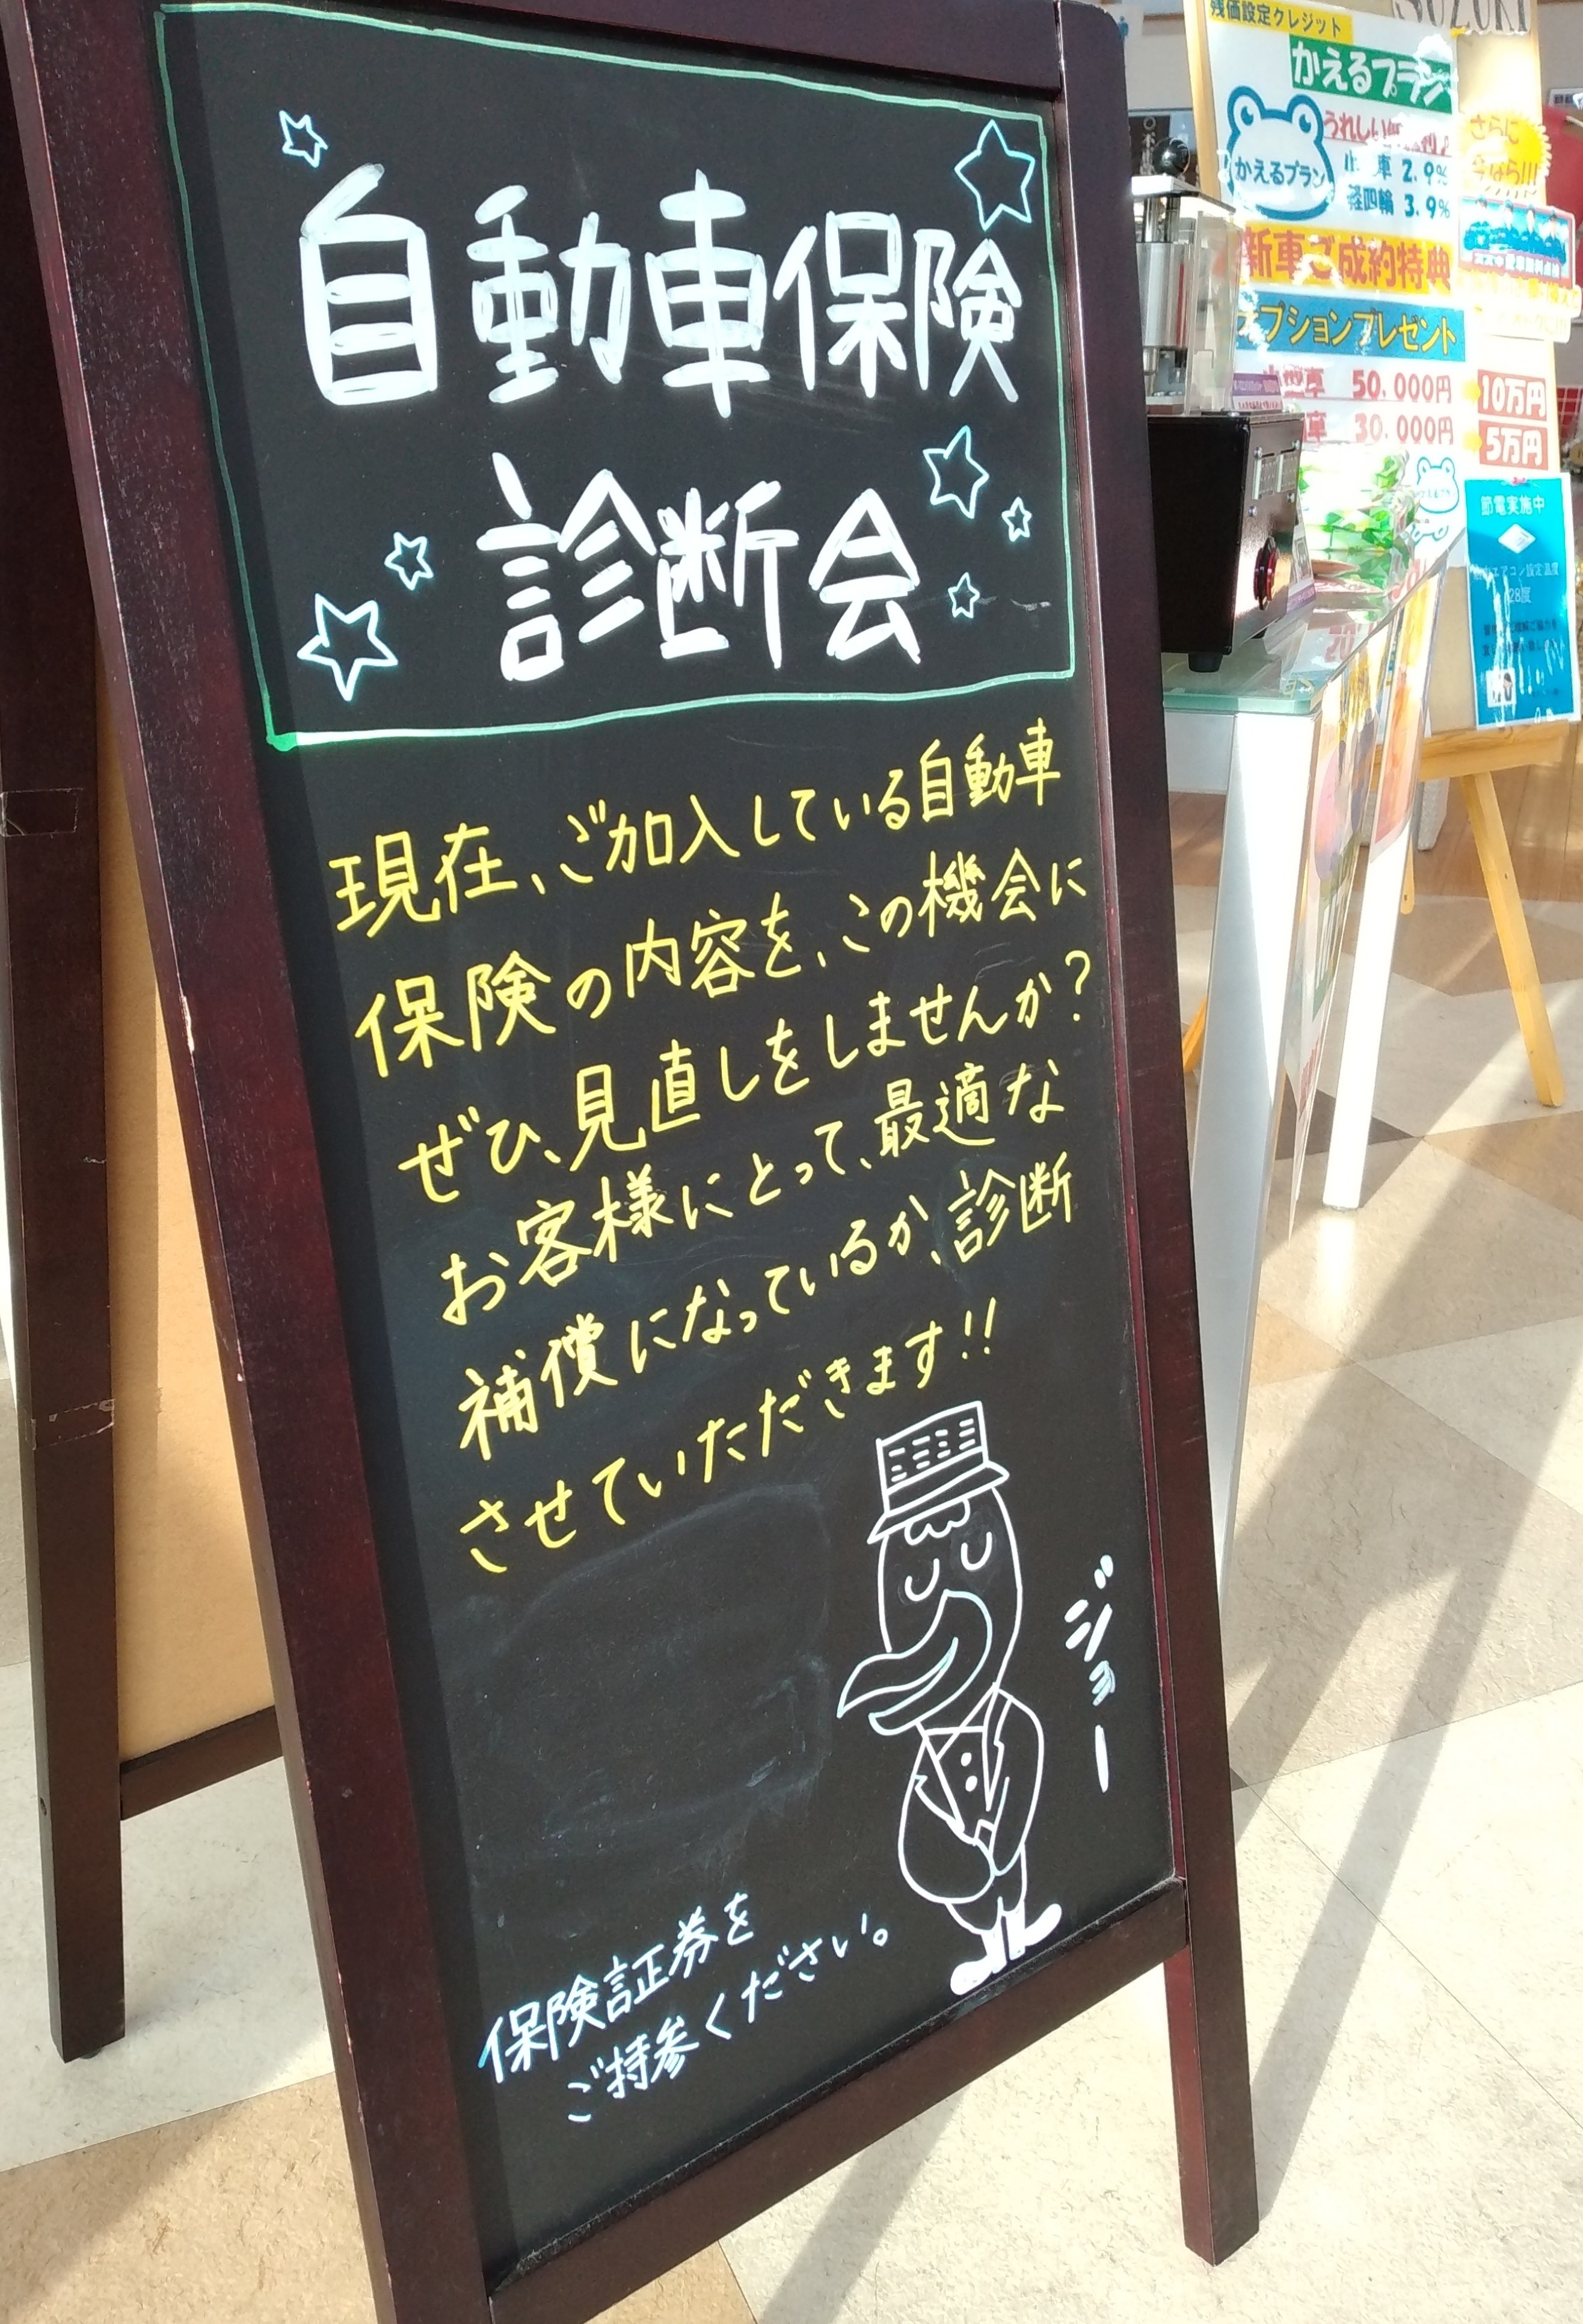 自動車保険
診断会
現在、ご加入している自動車
保険の内容を、この機会に
ぜひ、見直しをしませんか?
お客様にとって、最適な
補償になっているか、診断
させていただきます!!
ジョー
保険証券を
ご持参ください。
SUZUKI
残価設定クレジット
かえるプラン
うれしい
かえるプラン
車 2.9%
軽四輪 3.9%
新車ご成約特典
オプションプレゼント
50,000円
30,000円
さらに
今なら!!!
10万円
5万円
節電実施中
エアコン設定温度
28度